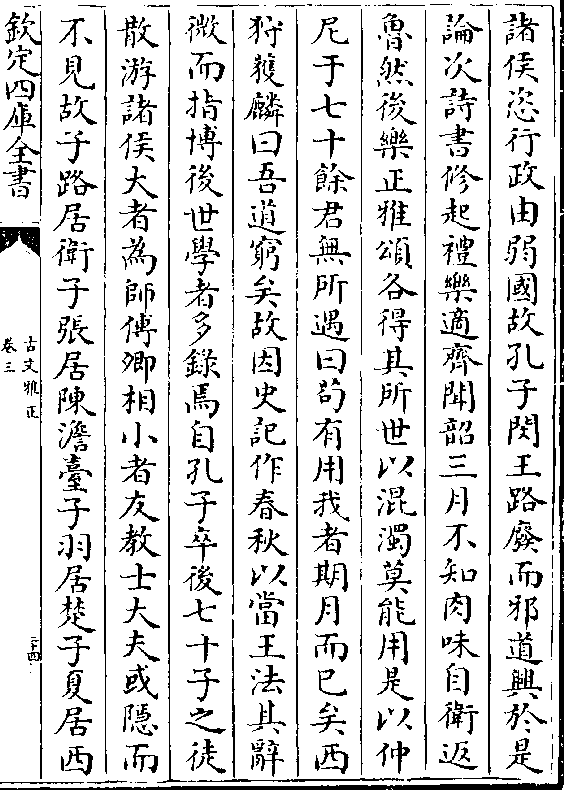 諸侯恣行政由弱國故孔子閔王路廢而邪道興於是
論次詩書修起禮樂適齊聞韶三月不知肉味自衛返
魯然後樂正雅頌各得其所世以混濁莫能用是以仲
尼于七十餘君無所遇曰苟有用我者期月而已矣西
狩獲麟曰吾道窮矣故因史記作春秋以當王法其辭
微而指博後世學者多錄焉自孔子卒後七十子之徒
散游諸侯大者為師傅卿相小者友教士大夫或隱而
不見故子路居衛子張居陳澹臺子羽居楚子夏居西
欽定四庫全書
古文雅正
卷三
二十四